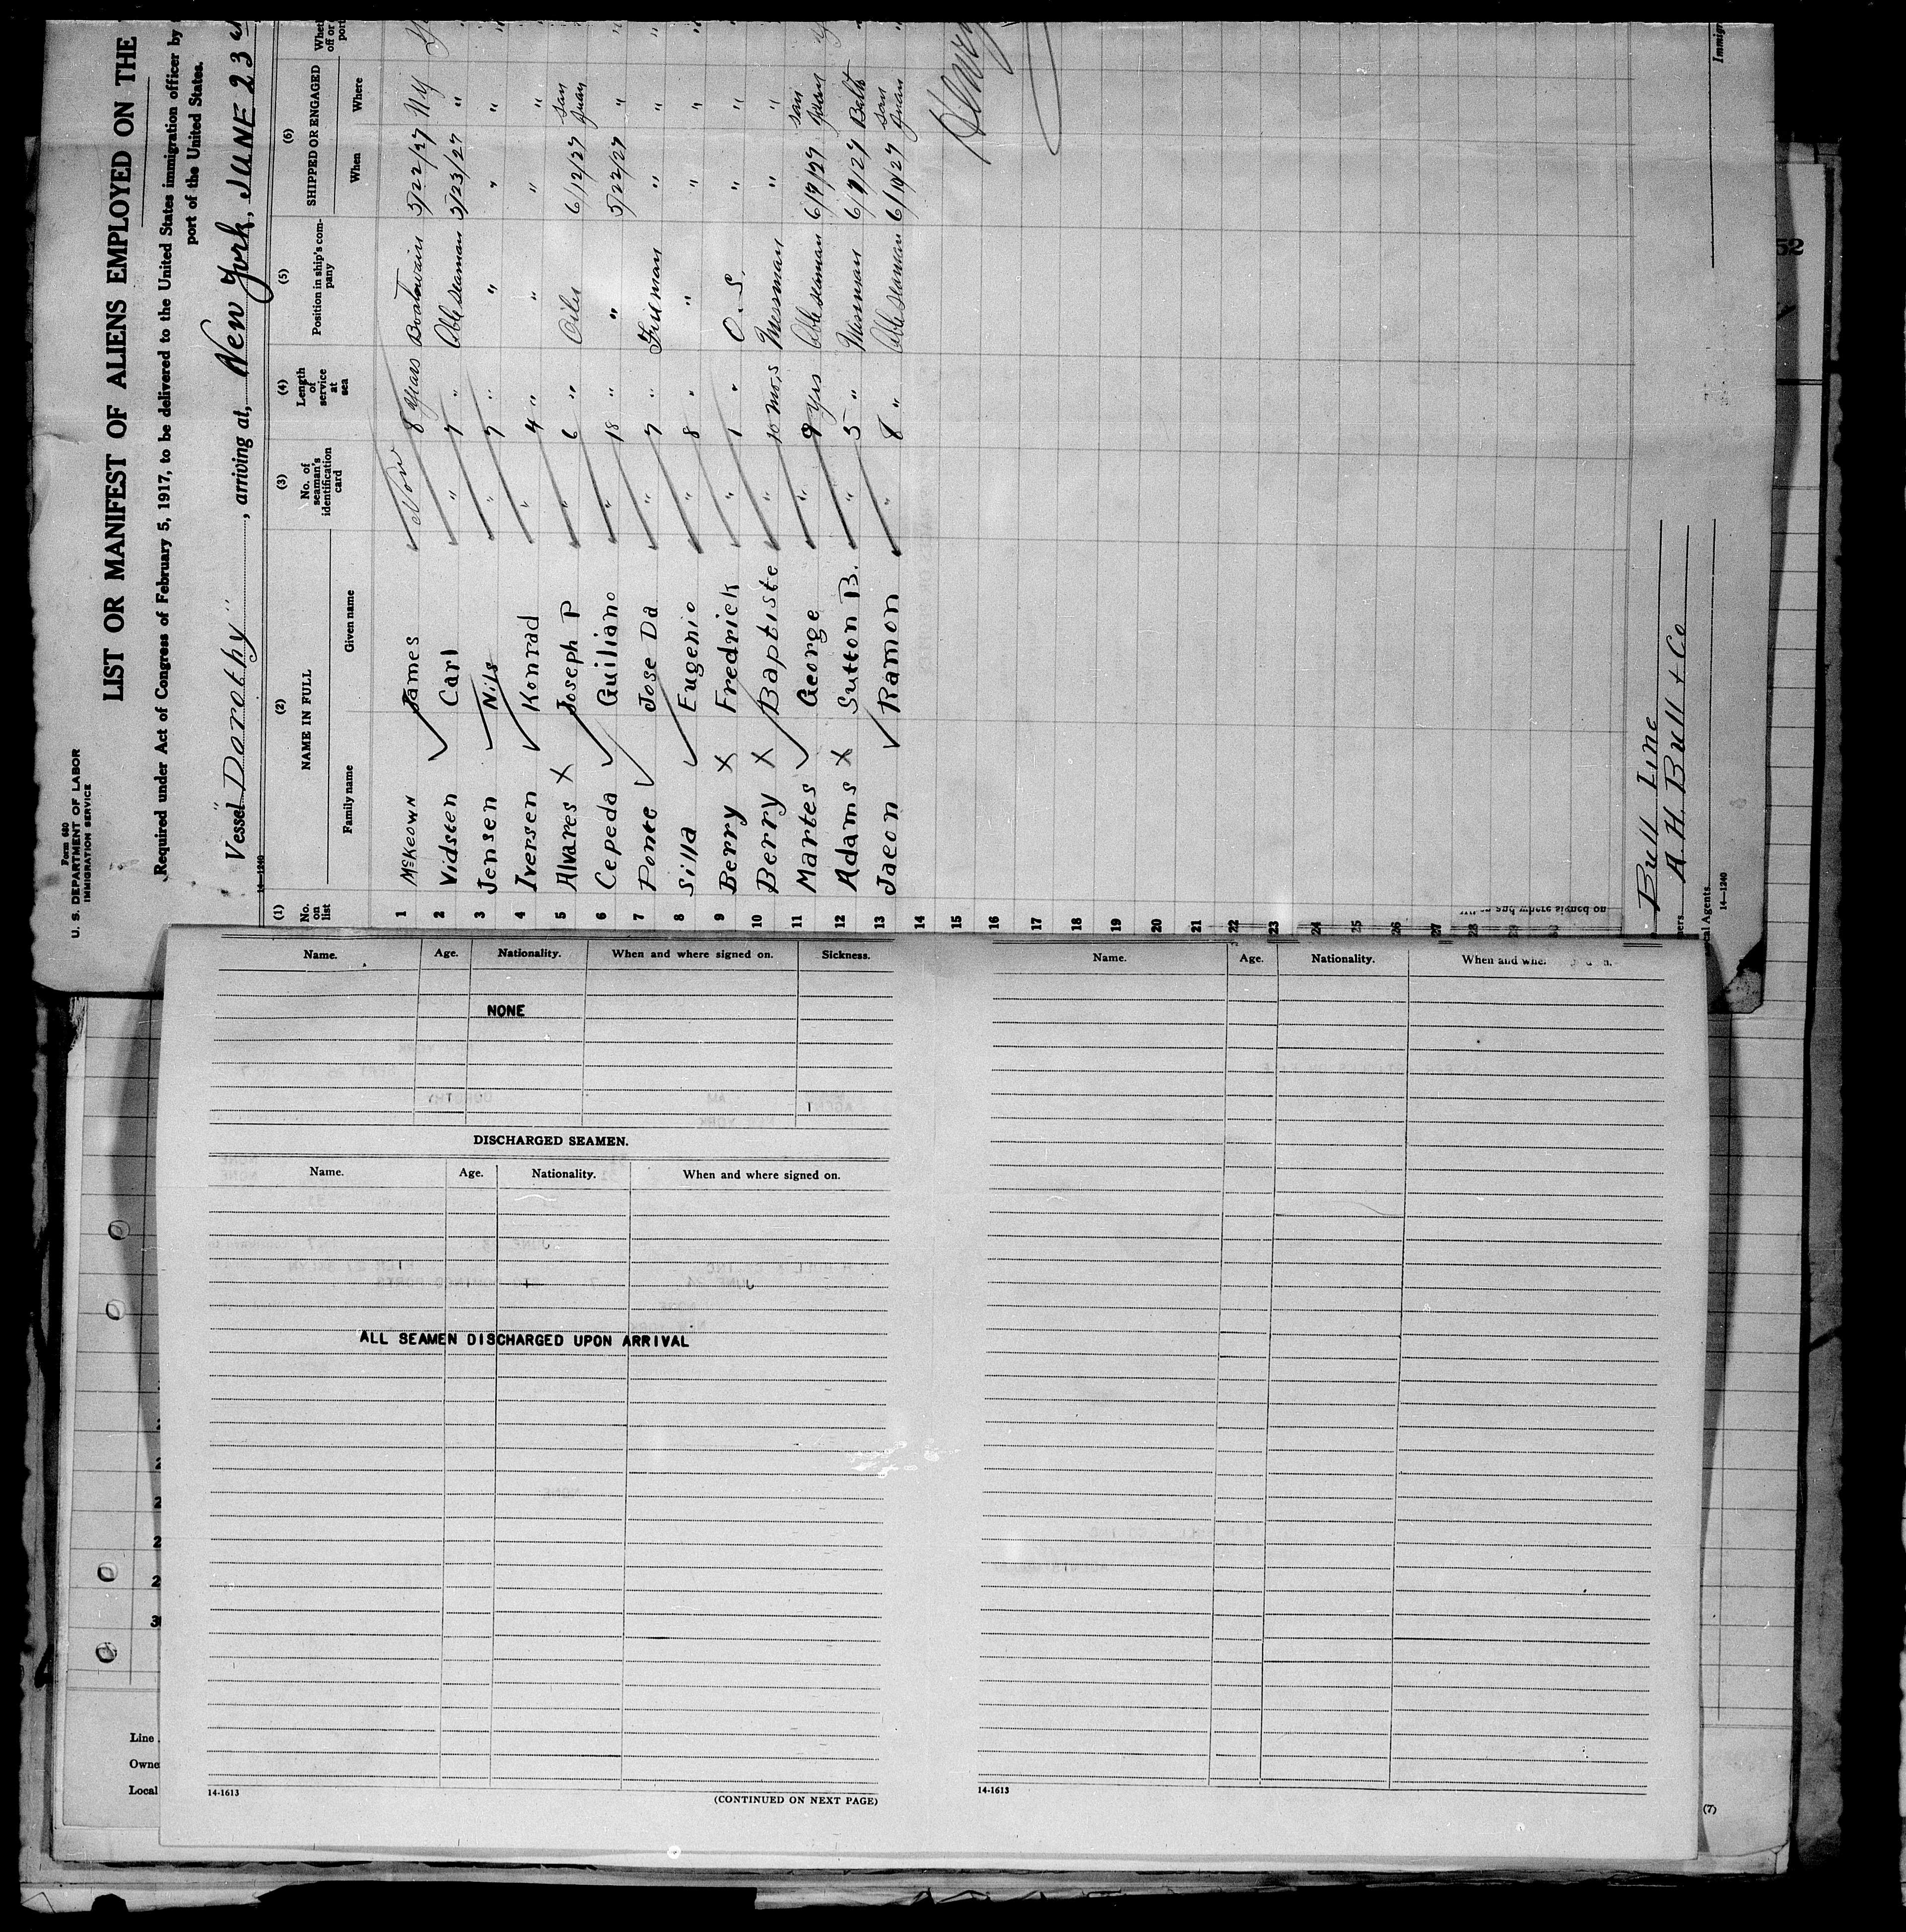 Form 680
U. S. DEPARTMENT OF LABOR
IMMIGRATION SERVICE
LIST OR MANIFEST OF ALIENS EMPLOYED ON THE
Required under Act of Congress of February 5, 1917, to be delivered to the United States immigration officer by
port of the United States.
Vessel "Dorothy", arriving at, New York, JUNE 23
14—1240
(1) (2) (3) (4) (5) (6)
No. on list NAME IN FULL No. of seaman's identification card Length of service at sea Position in ship's company SHIPPED OR ENGAGED
Family name Given name When Where
1 McKeown James None 8 years Boatswain 5/22/27 NY
2 Vidsten Carl " 7 " Able Seaman 5/23/27 "
3 Jensen Nils " 7 " " " "
4 Iversen Konrad " 4 " " " "
5 Alvares X Joseph P " 6 " Oiler 6/12/27 San Juan
6 Cepeda Guiliano " 18 " " 5/22/27 "
7 Ponte Jose Da " 7 " Fireman " "
8 Silla Eugenio " 8 " " " "
9 Berry X Fredrick " 1 " O.S. " "
10 Berry X Baptiste " 10 mos Messman " "
11 Martes George " 9 yrs Able Seaman San Juan
12 Adams X Sutton B. " 5 " Messman Balt
13 Jacon Ramon " 8 " Able Seaman San Juan
14
15
16
17
18
19
20
21
22
23
24
25
26
27
28
29
30
Henry
Bull Line
A. H. Bull & Co
cal Agents.
14—1240
Immigr
52
Name. Age. Nationality. When and where signed on. Sickness.
NONE
DISCHARGED SEAMEN.
Name. Age. Nationality. When and where signed on.
ALL SEAMEN DISCHARGED UPON ARRIVAL
14-1613
(CONTINUED ON NEXT PAGE)
Name. Age. Nationality. When and whe
14-1613
Line
Owne
Local
(7)